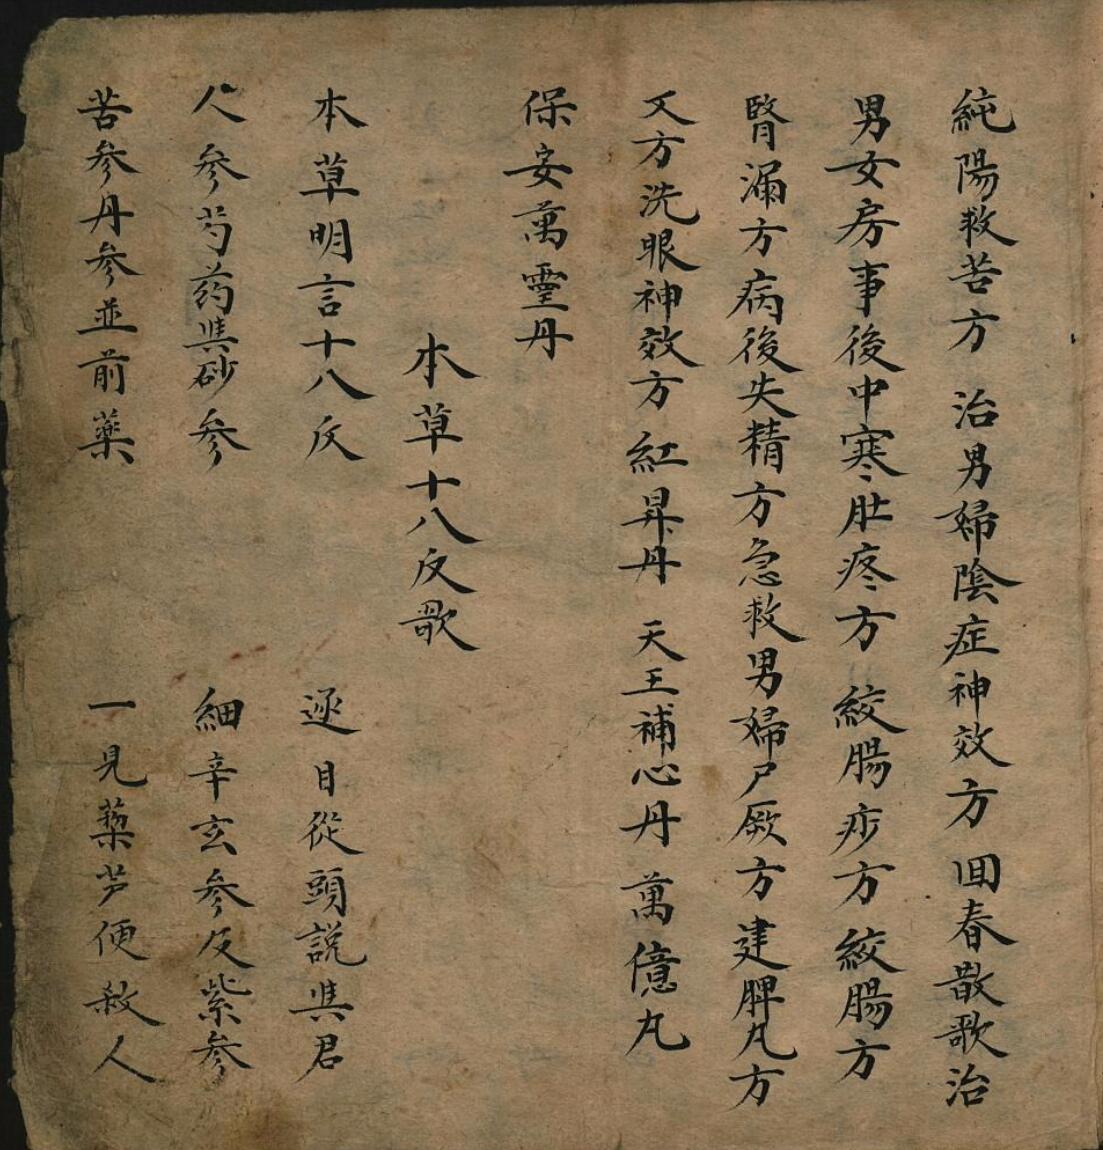 純陽救苦方 治男婦陰症神效方 回春散歌治
男女房事後中寒肚疼方 絞腸痧方 絞腸方
腎漏方病後失精方急救男婦尸厥方建脾丸方
又方洗眼神效方 紅昇丹 天王補心丹 萬億丸
保安萬靈丹
本草十八反歌
本草明言十八反 逐目從頭説與君
人參芍药與砂參 細辛玄參及紫參
苦參丹參並前藥 一見藜芦便殺人